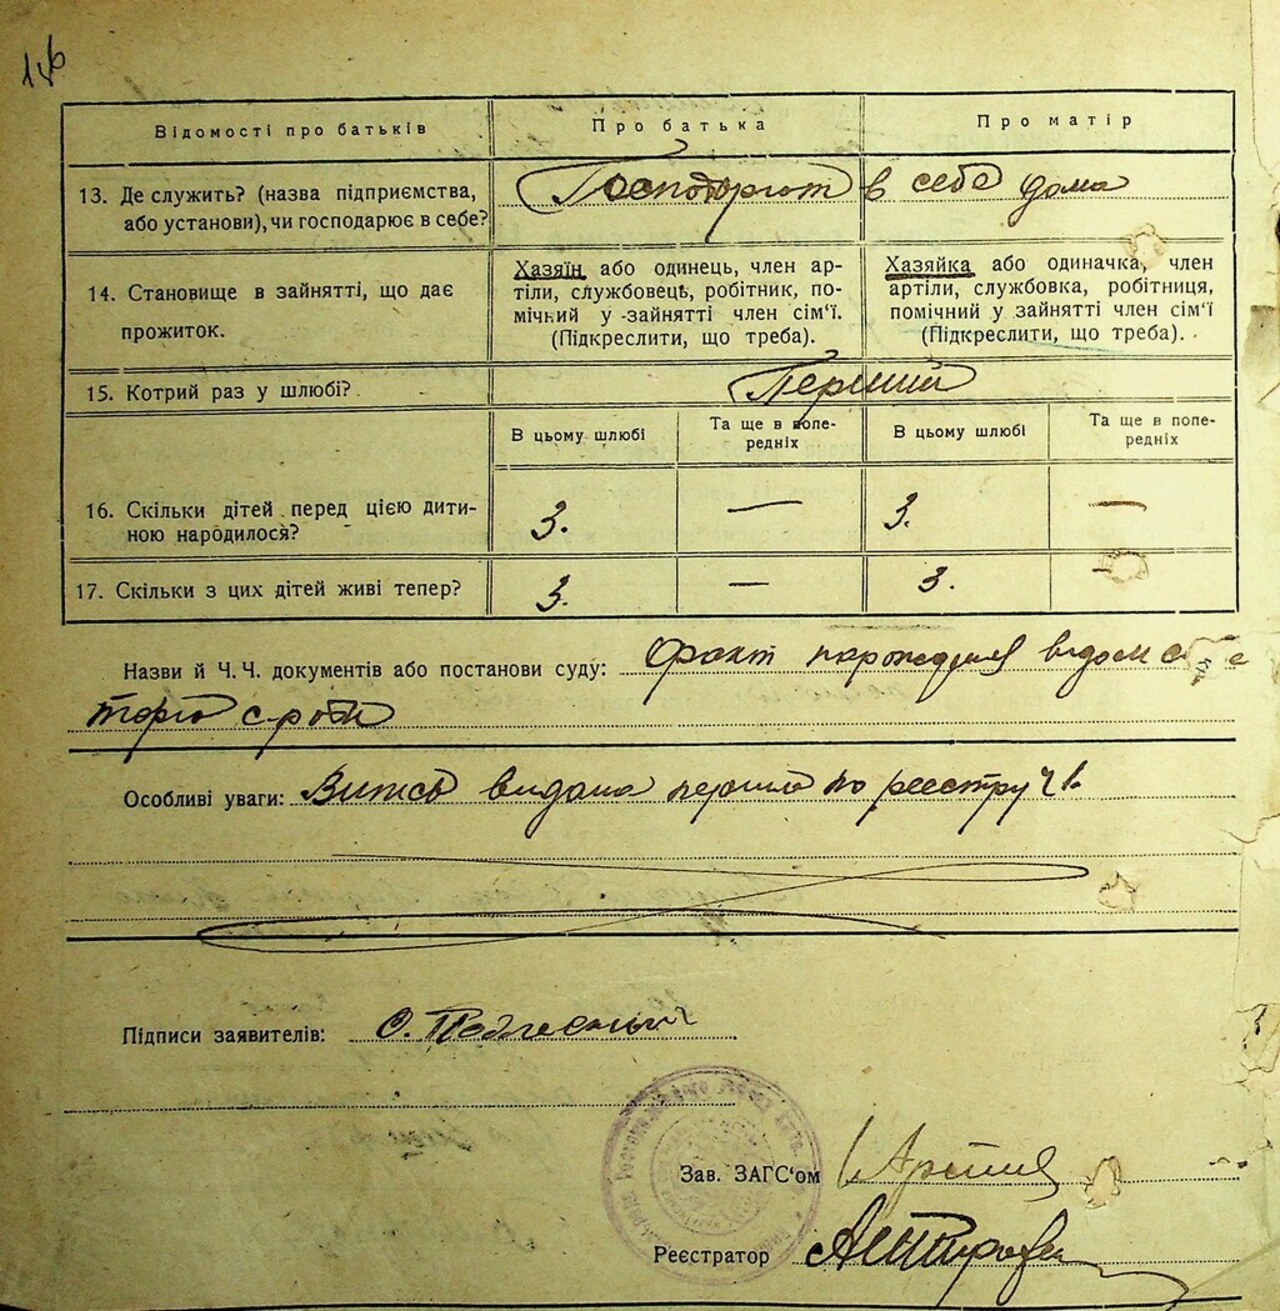 146
Відомості про батьків
Про батька
Про матір
13. Де служить? (назва підприємства, або установи), чи господарює в себе?
Господорют в себе дома
14. Становище в зайнятті, що дає прожиток.
Хазяїн або одинець, член ар-
тілі, службовець, робітник, по-
мічний у зайнятті член сім'ї.
(Підкреслити, що треба).
Хазяйка або одиначка, член
артілі, службовка, робітниця,
помічний у зайнятті член сім'ї
(Підкреслити, що треба).
15. Котрий раз у шлюбі?
Перший
В цьому шлюбі
Та ще в попе-
редніх
В цьому шлюбі
Та ще в попе-
редніх
16. Скільки дітей перед цією дити-
ною народилося?
3. — 3. —
17. Скільки з цих дітей живі тепер?
3. — 3. —
Назви й Ч. Ч. документів або постанови суду: Факт народження видом
Особливі уваги: Витсь видана по реєстру Ч 1.
Підписи заявителів:
Зав. ЗАГС'ом
Реєстратор